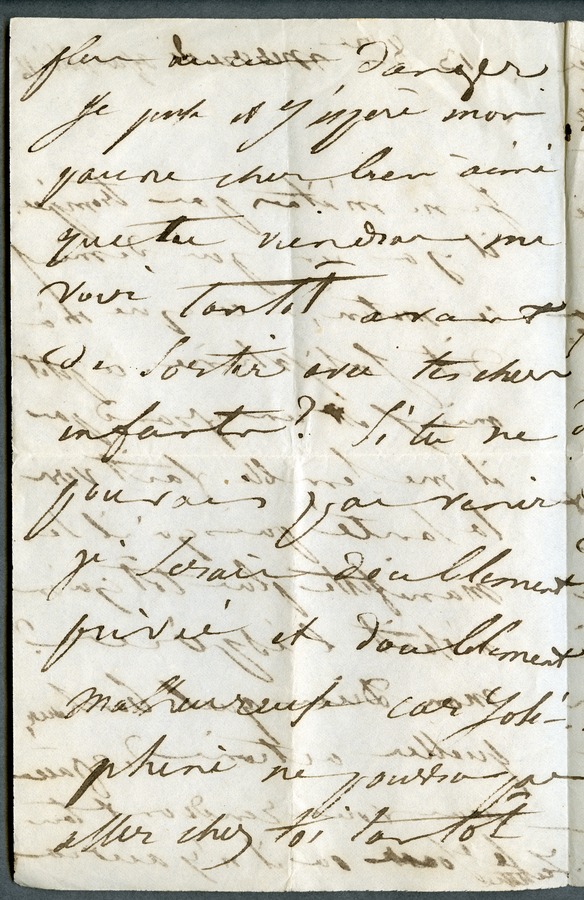 plus aucun danger
Je pense et j'espère mon
pauvre cher bien-aimé
que tu viendras me
voir tantôt avant
de sortir avec tes chers
enfants ? Si tu ne
pouvais pas venir
je serais doublement
privée et doublement
malheureuse car José-
phine ne pourra pas
aller chez toi tantôt